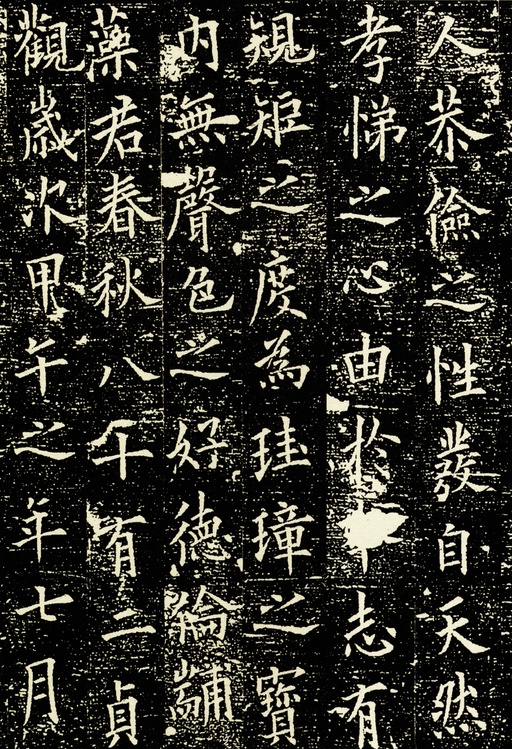 人恭儉之性發自天然
孝悌之心由於志有
規矩之度為珪璋之寶
內無聲色之好德綸黼
藻君春秋八有二貞
觀歲次甲午之年七月